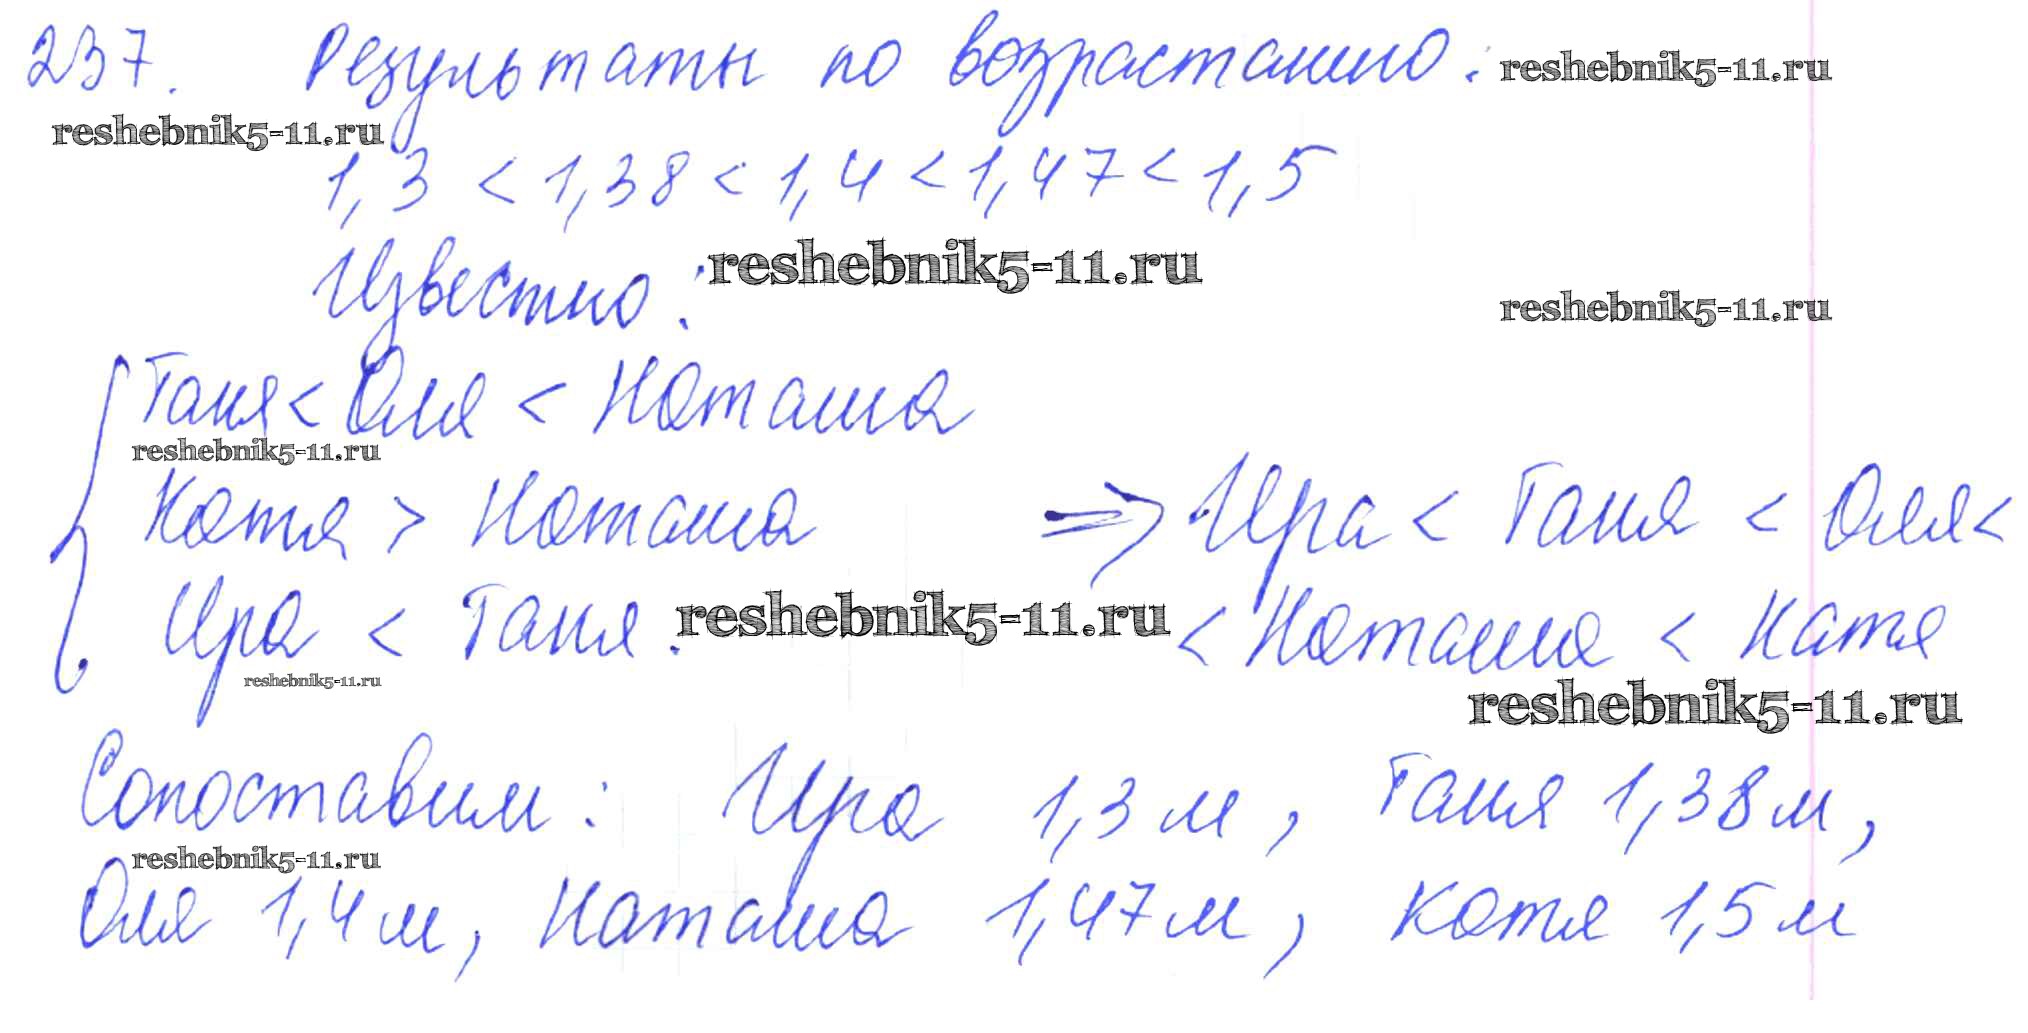 237. Результаты по возрастанию: reshebnik5-11.ru
reshebnik5-11.ru
1,3 < 1,38 < 1,4 < 1,47 < 1,5
Известно: reshebnik5-11.ru
reshebnik5-11.ru
Таня < Оля < Наташа
reshebnik5-11.ru
Катя > Наташа => Ира < Таня < Оля <
Ира < Таня. reshebnik5-11.ru < Наташа < Катя
reshebnik5-11.ru
reshebnik5-11.ru
Сопоставим: Ира 1,3 м, Таня 1,38 м,
reshebnik5-11.ru
Оля 1,4 м, Наташа 1,47 м, Катя 1,5 м